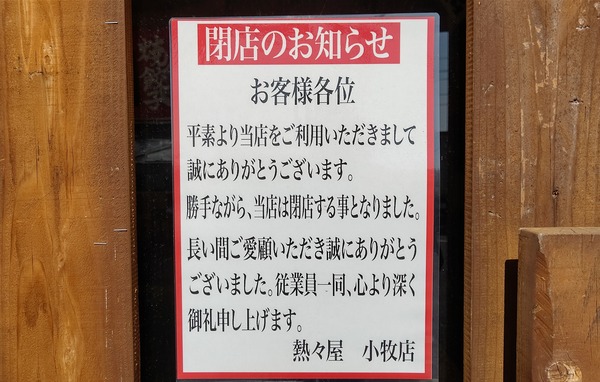 閉店のお知らせ
お客様各位
平素より当店をご利用いただきまして
誠にありがとうございます。
勝手ながら、当店は閉店する事となりました。
長い間ご愛顧いただき誠にありがとう
ございました。従業員一同、心より深く
御礼申し上げます。
熱々屋　小牧店